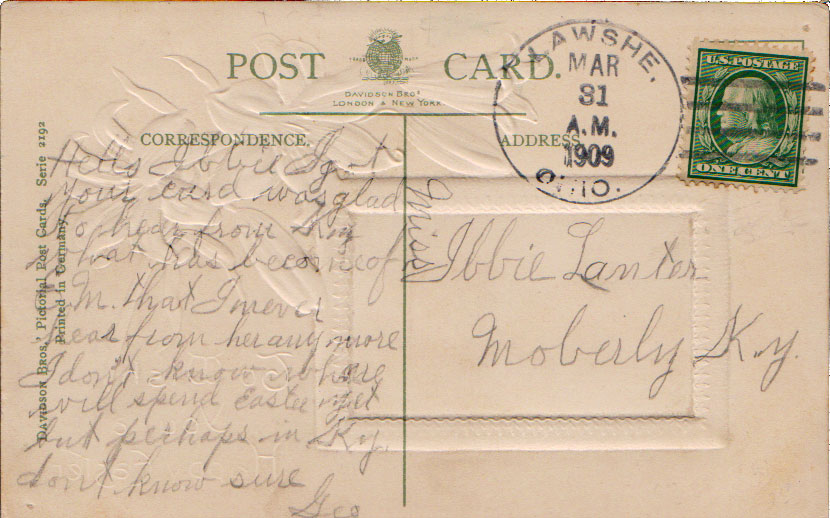 POST CARD.
DAVIDSON BROS
LONDON & NEW YORK
CORRESPONDENCE.
ADDRESS
LAWSHE,
MAR
31
A.M.
1909
OHIO.
U.S. POSTAGE
ONE CENT
DAVIDSON BROS.' Pictorial Post Cards. Serie 2192
Printed in Germany.
Hello Ibbie I got
your card was glad
to hear from Ky
what has become of
M. that I never
hear from her any more
I don't know where
I will spend Easter yet
but perhaps in Ky.
don't know sure
Geo
Miss Ibbie Lanter
Moberly Ky.